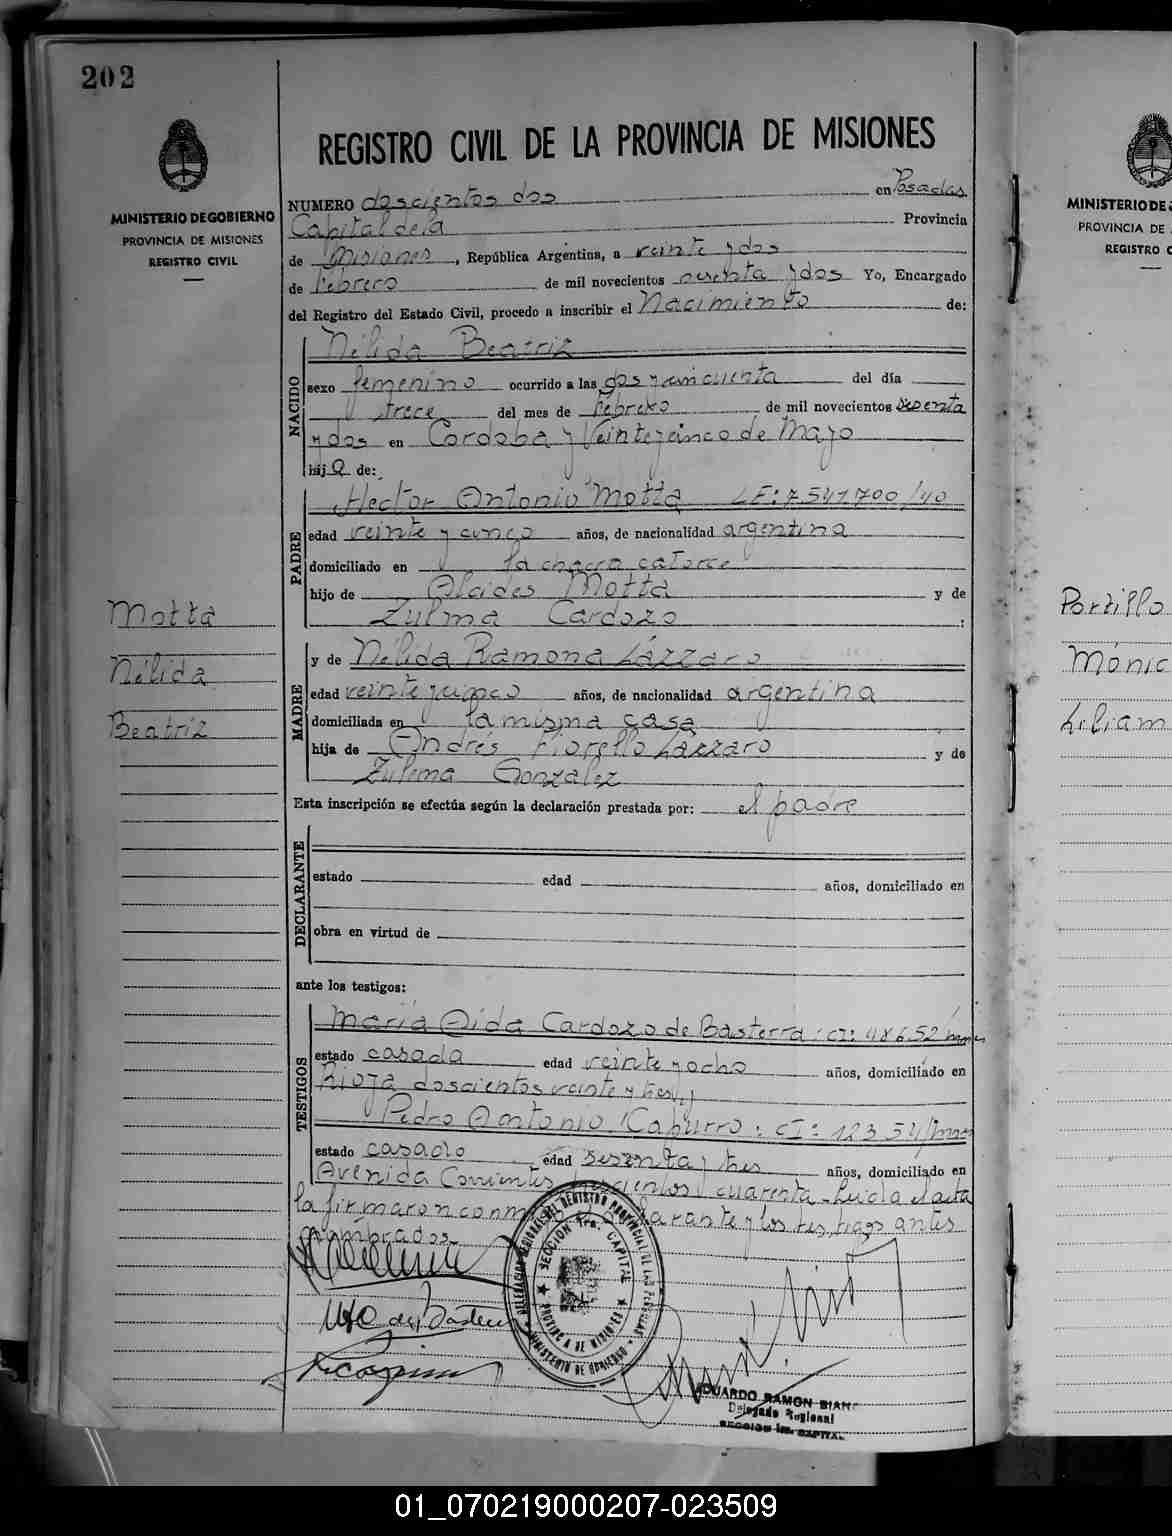 202
REGISTRO CIVIL DE LA PROVINCIA DE MISIONES
MINISTERIO DE GOBIERNO
PROVINCIA DE MISIONES
REGISTRO CIVIL
NUMERO doscientos dos en Posadas
Capital de la Provincia
de Misiones, República Argentina, a veinte y dos
de febrero de mil novecientos sesenta y dos Yo, Encargado
del Registro del Estado Civil, procedo a inscribir el Nacimiento de:
NACIDO
Nélida Beatriz
sexo femenino ocurrido a las dos y cincuenta del día
trece del mes de febrero de mil novecientos sesenta
y dos en Cordoba y Veinte y cinco de Mayo
hija de:
PADRE
Hector Antonio Motta LE: 7.541.700/40
edad veinte y cinco años, de nacionalidad argentina
domiciliado en la chacra catorce
hijo de Alcides Motta y de
Zulma Cardozo
Motta
Nélida
Beatriz
MADRE
y de Nélida Ramona Lázzaro
edad veinte y cinco años, de nacionalidad argentina
domiciliada en la misma casa
hija de Andrés Fiorello Lázzaro y de
Zulema Gonzalez
Esta inscripción se efectúa según la declaración prestada por: el padre
DECLARANTE
estado edad años, domiciliado en
obra en virtud de
ante los testigos:
TESTIGOS
María Aida Cardozo de Basterra: CI: 48652/mnes
estado casada edad veinte y ocho años, domiciliado en
Rioja doscientos veinte y tres y
Pedro Antonio Capurro: CI: 12354/mnes
estado casado edad sesenta y tres años, domiciliado en
Avenida Corrientes cuarenta. Leida el acta
la firmaron conmigo el declarante y los testigos antes
nombrados.
DELEGACION REGIONAL DEL REGISTRO PROVINCIAL DE LAS PERSONAS
SECCION 1ra. CAPITAL
PROVINCIA DE MISIONES
MINISTERIO DE GOBIERNO
EDUARDO RAMON
Delegado Regional
SECCION 1ra. CAPITAL
MINISTERIO DE
PROVINCIA DE
REGISTRO
Portillo
Mónic
Liliam
01_070219000207-023509